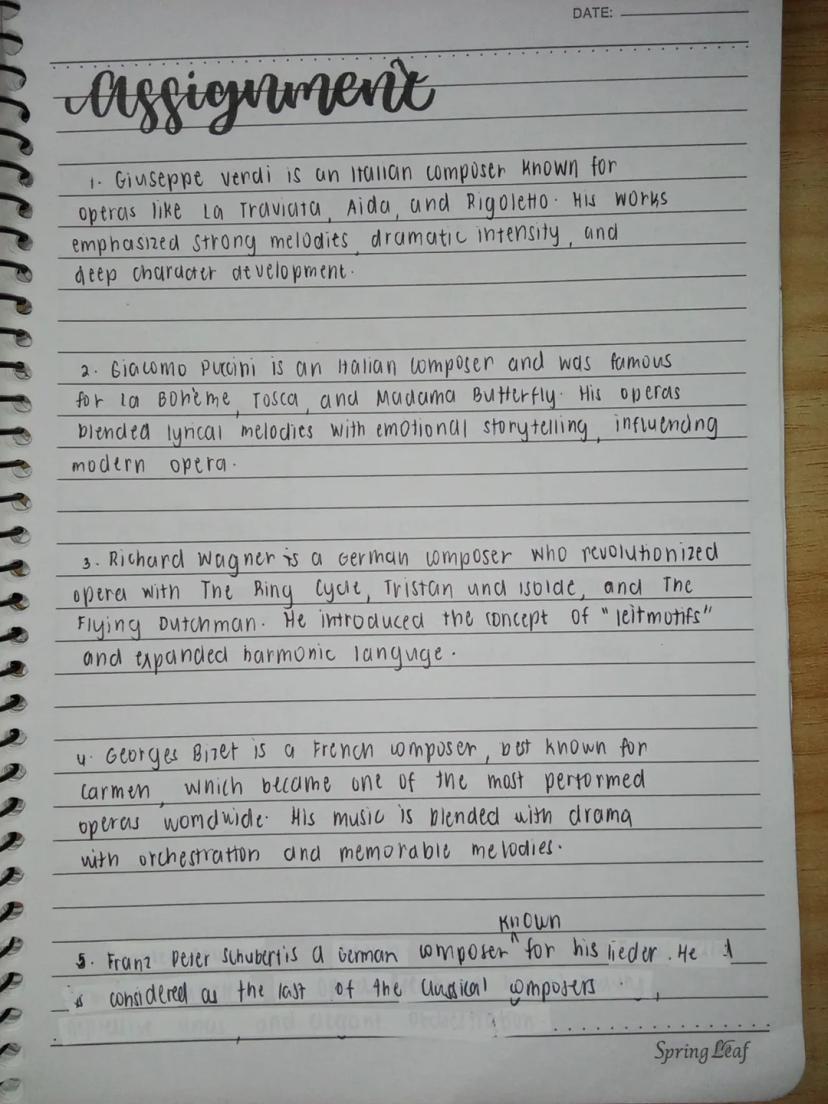 DATE:
Assignment
1. Giuseppe Verdi is an Italian composer known for
operas like La Traviata, Aida, and Rigoletto. His works
emphasized strong melodies, dramatic intensity, and
deep character development.
2. Giacomo Puccini is an Italian composer and was famous
for La Bohème, Tosca, and Madama Butterfly. His operas
blended lyrical melodies with emotional storytelling, influencing
modern opera.
3. Richard Wagner is a German composer who revolutionized
opera with The Ring Cycle, Tristan und Isolde, and The
Flying Dutchman. He introduced the concept of "leitmotifs"
and expanded harmonic languge.
4. Georges Bizet is a French composer, best known for
Carmen, which became one of the most performed
operas womdwide. His music is blended with drama
with orchestration and memorable melodies.
known
5. Franz Peter Schubert is a German composer ^ for his lieder. He
is considered as the last of the classical composers
Spring Leaf